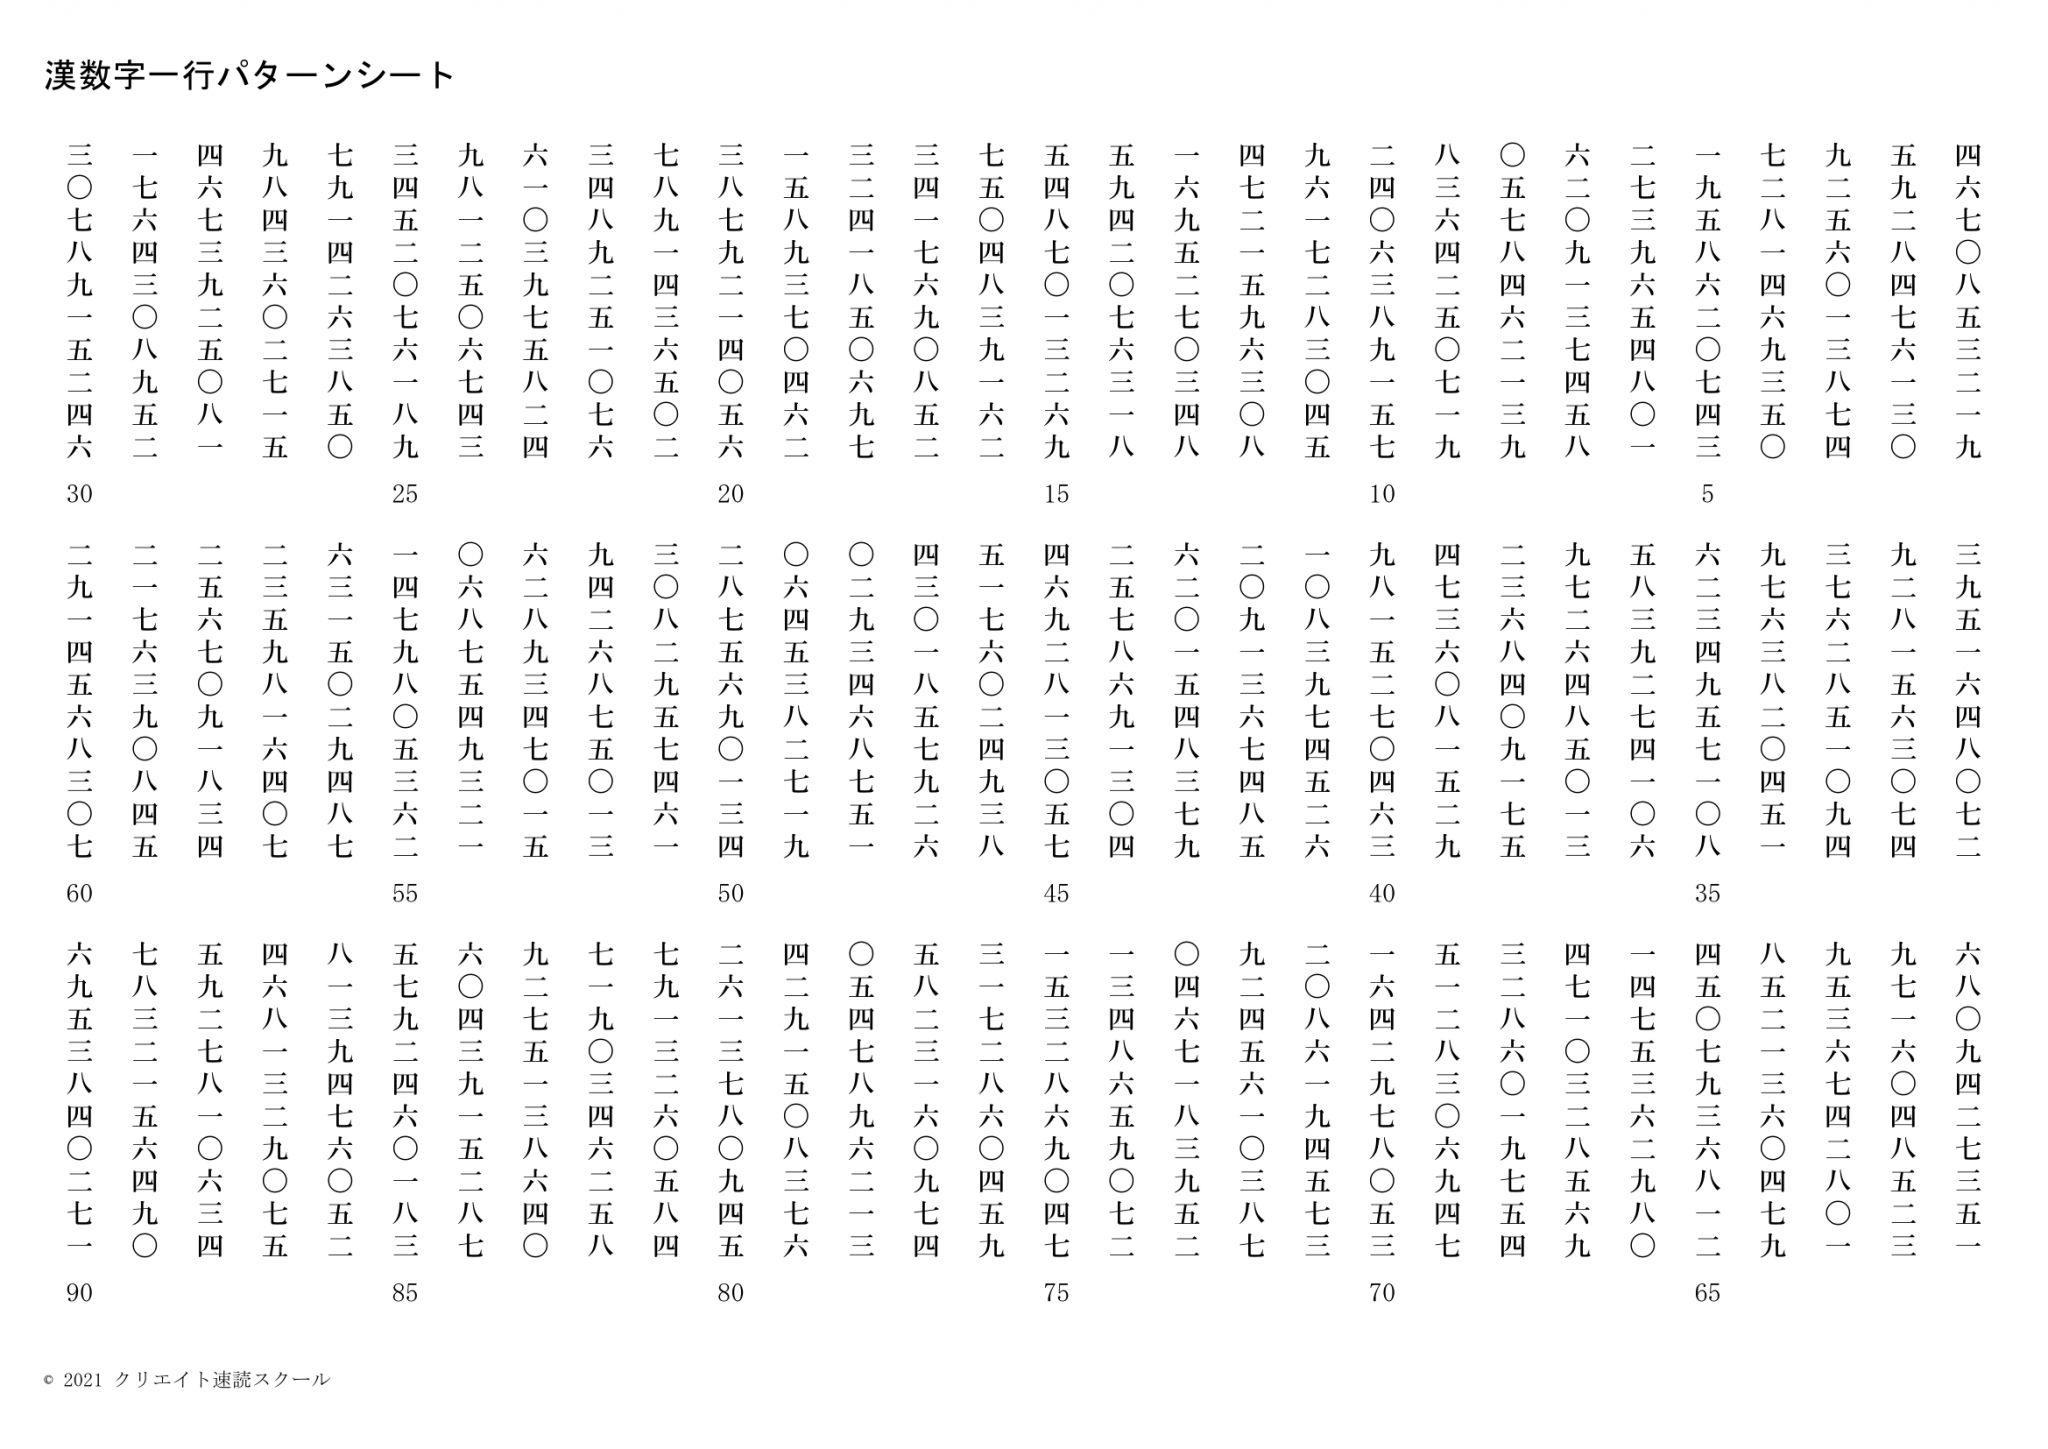 漢数字一行パターンシート
四六七〇八五三二一九
五九二八四七六一三〇
九二五六〇一三八七四
七二八一四六九三五〇
一九五八六二〇七四三
5
二七三九六五四八〇一
六二〇九一三七四五八
〇五七八四六二一三九
八三六四二五〇七一九
二四〇六三八九一五七
10
九六一七二八三〇四五
四七二一五九六三〇八
一六九五二七〇三四八
五九四二〇七六三一八
五四八七〇一三二六九
15
七五〇四八三九一六二
三四一七六九〇八五二
三二四一八五〇六九七
一五八九三七〇四六二
三八七九二一四〇五六
20
七八九一四三六五〇二
三四八九二五一〇七六
六一〇三九七五八二四
九八一二五〇六七四三
三四五二〇七六一八九
25
七九一四二六三八五〇
九八四三六〇二七一五
四六七三九二五〇八一
一七六四三〇八九五二
三〇七八九一五二四六
30
三九五一六四八〇七二
九二八一五六三〇七四
三七六二八五一〇九四
九七六三八二〇四五一
六二三四九五七一〇八
35
五八三九二七四一〇六
九七二六四八五〇一三
二三六八四〇九一七五
四七三六〇八一五二九
九八一五二七〇四六三
40
一〇八三九七四五二六
二〇九一三六七四八五
六二〇一五四八三七九
二五七八六九一三〇四
四六九二八一三〇五七
45
五一七六〇二四九三八
四三〇一八五七九二六
〇二九三四六八七五一
〇六四五三八二七一九
二八七五六九〇一三四
50
三〇八二九五七四六一
九四二六八七五〇一三
六二八九三四七〇一五
〇六八七五四九三二一
一四七九八〇五三六二
55
六三一五〇二九四八七
二三五九八一六四〇七
二五六七〇九一八三四
二一七六三九〇八四五
二九一四五六八三〇七
60
六八〇九四二七三五一
九七一六〇四八五二三
九五三六七四二八〇一
八五二一三六〇四七九
四五〇七九三六八一二
65
一四七五三六二九八〇
四七一〇三二八五六九
三二八六〇一九七五四
五一二八三〇六九四七
一六四二九七八〇五三
70
二〇八六一九四五七三
九二四五六一〇三八七
〇四六七一八三九五二
一三四八六五九〇七二
一五三二八六九〇四七
75
三一七二八六〇四五九
五八二三一六〇九七四
〇五四七八九六二一三
四二九一五〇八三七六
二六一三七八〇九四五
80
七九一三二六〇五八四
七一九〇三四六二五八
九二七五一三八六四〇
六〇四三九一五二八七
五七九二四六〇一八三
85
八一三九四七六〇五二
四六八一三二九〇七五
五九二七八一〇六三四
七八三二一五六四九〇
六九五三八四〇二七一
90
© 2021 クリエイト速読スクール